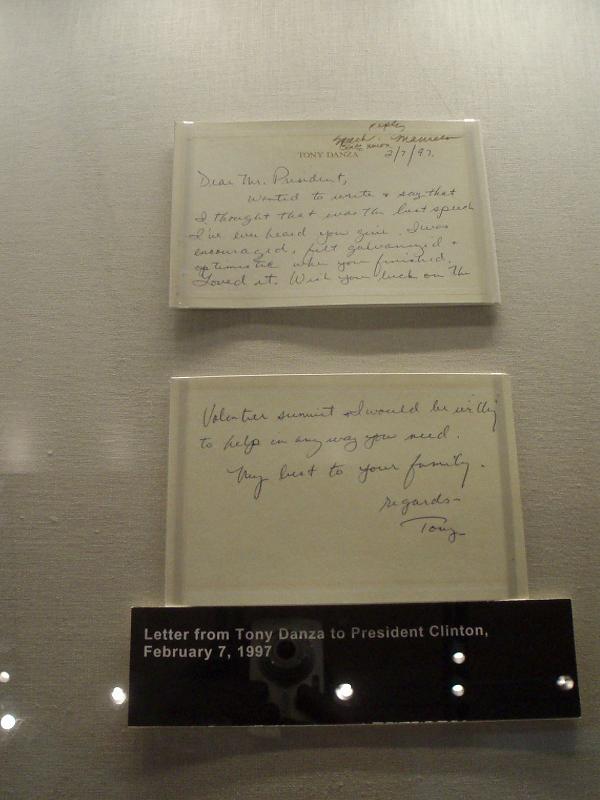 reply
TONY DANZA 2/7/97.
Dear Mr. President,
Wanted to write & say that
I thought that was the best speech
I've ever heard you give. I was
encouraged, felt galvanized &
optimistic when you finished.
Loved it. Wish you luck on the
Volunteer summit & I would be willing
to help in any way you need.
My best to your family.
regards-
Tony
Letter from Tony Danza to President Clinton,
February 7, 1997